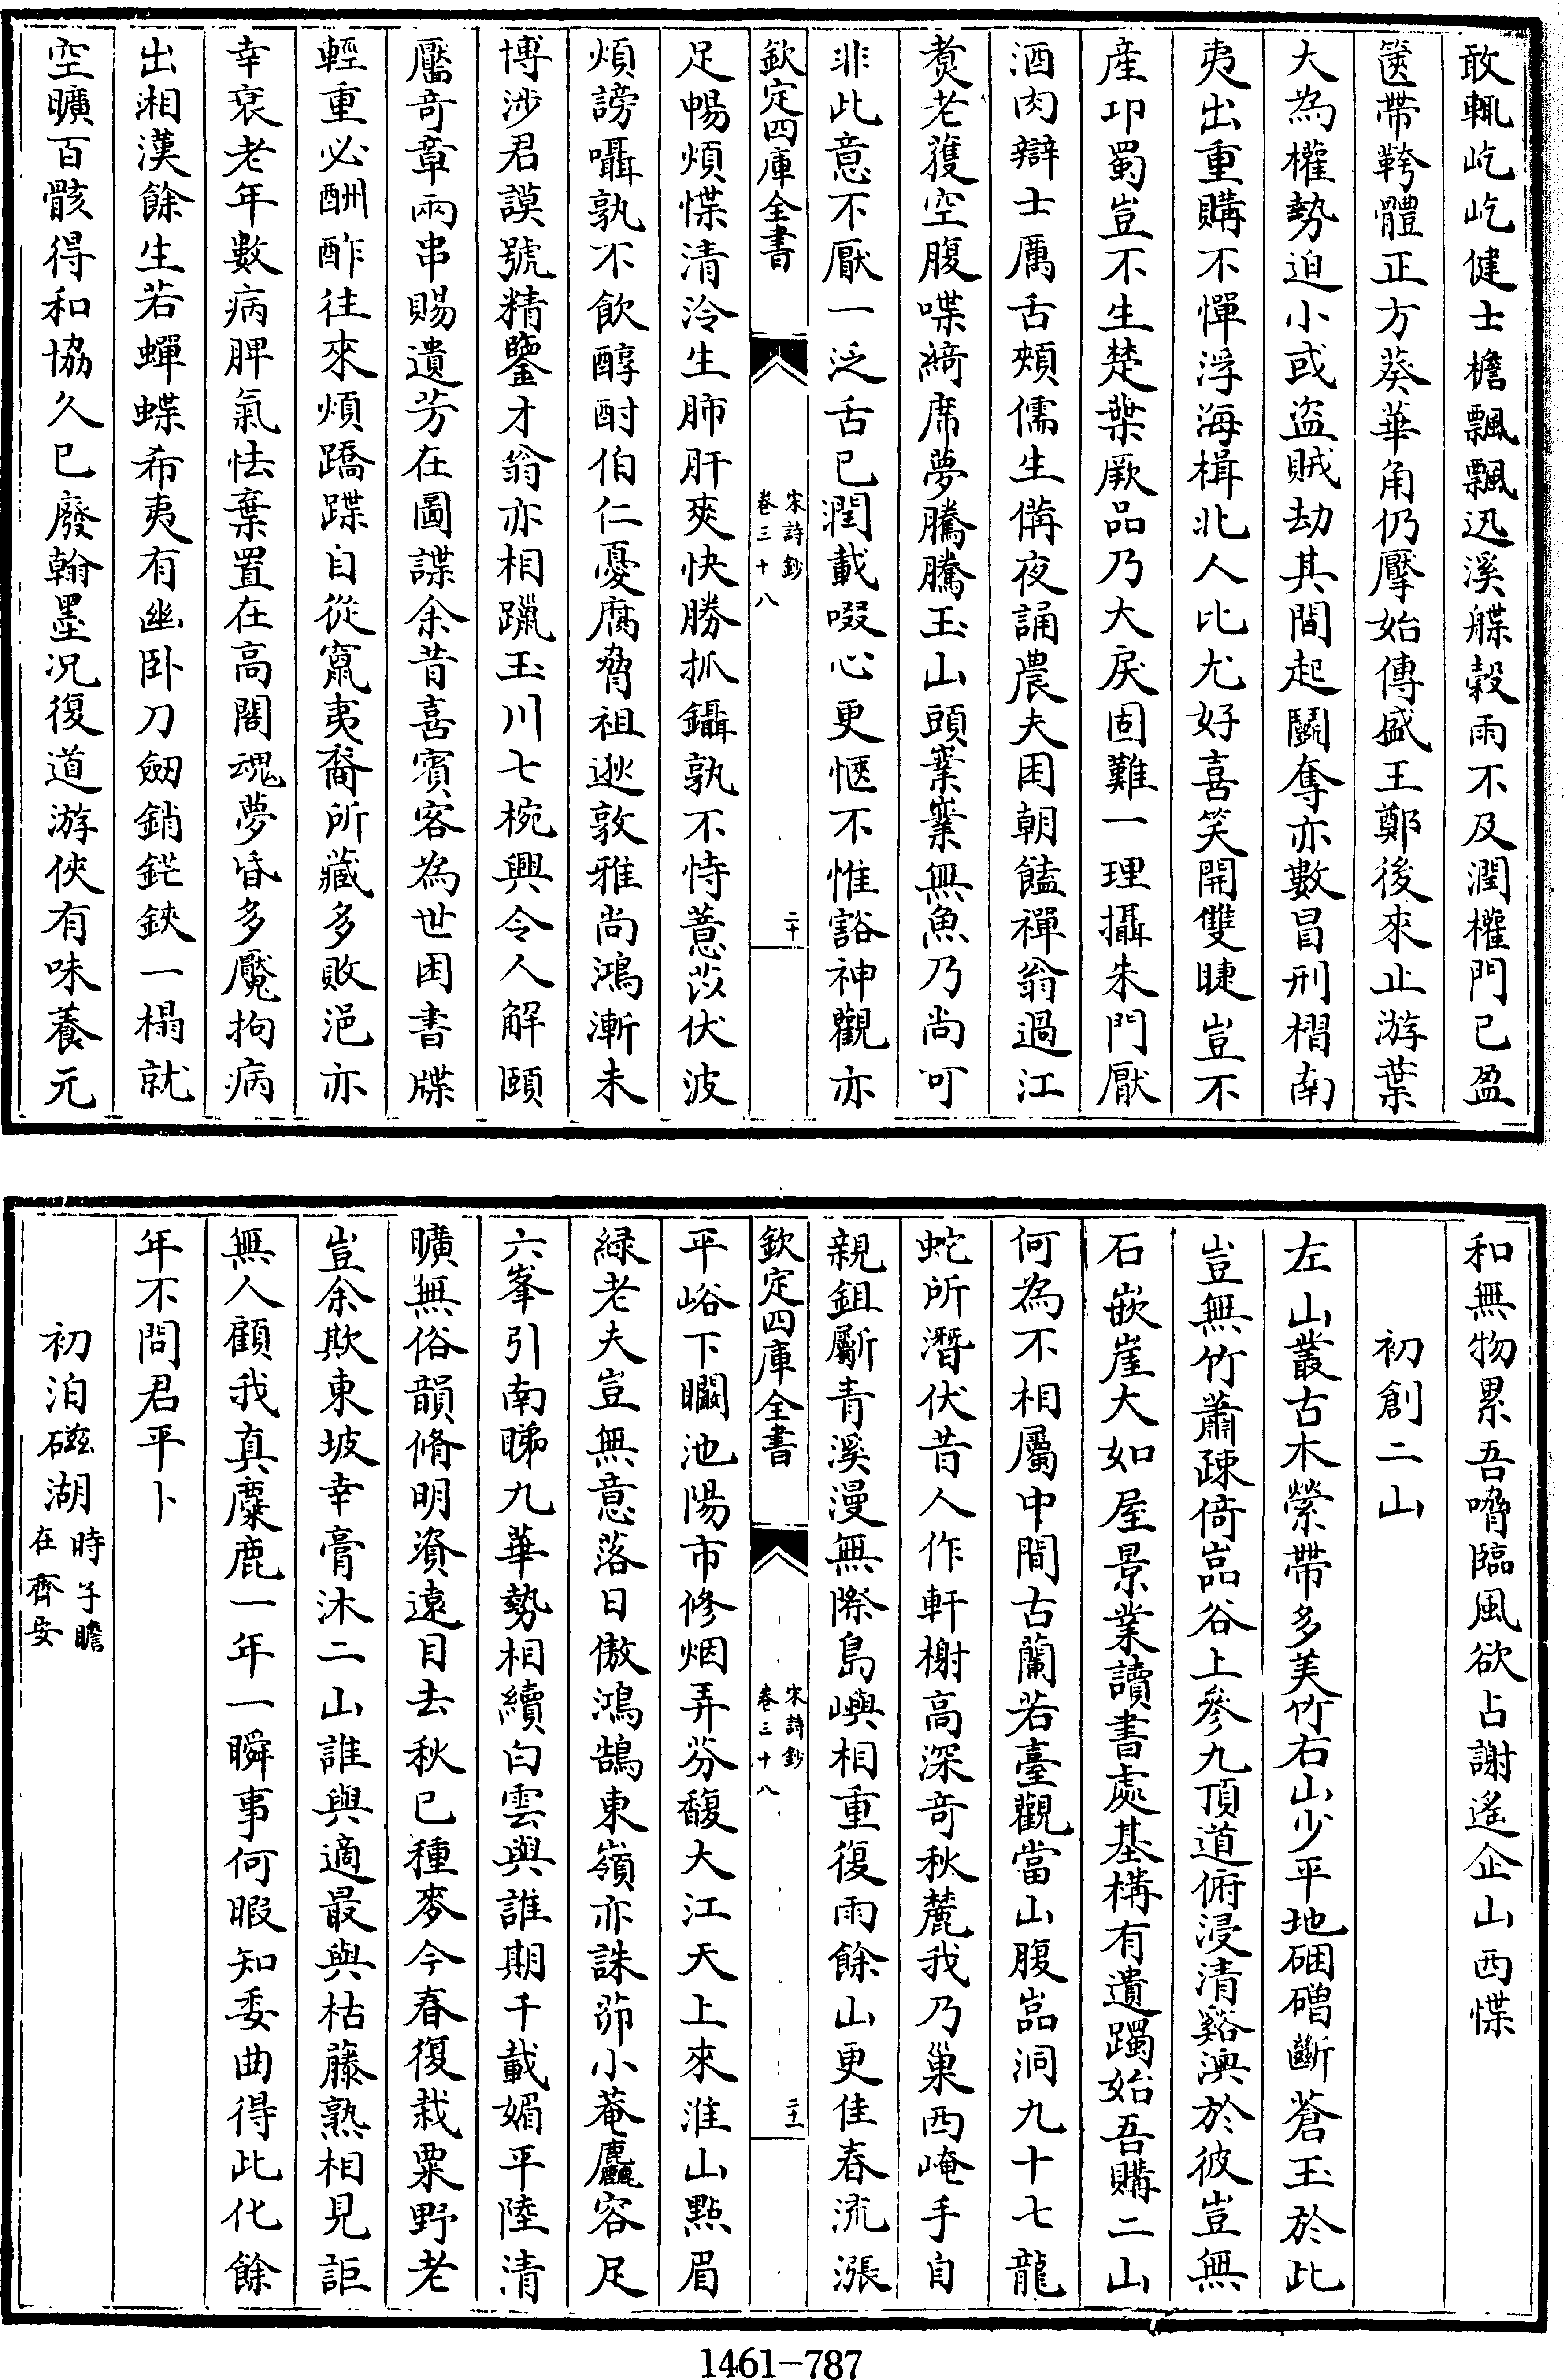 敢輒屹屹健士檐飄飄迅溪艓穀雨不及潤權門已盈
篋帶鞶體正方葵華角仍壓始傳盛王鄭後來止游葉
大為權勢迫小或盜賊劫其間起鬬奪亦數冒刑榴南
夷出重購不憚浮海楫北人比尤好喜笑開雙睫豈不
産卭蜀豈不生楚葉厥品乃大戾固難一理攝朱門厭
酒肉辯士厲舌頰儒生備夜誦農夫困朝饁禪翁過江
煑老蒦空腹喋締席夢騰騰玉山頭業業無魚乃尚可
非此意不厭一泛舌已潤載啜心更愜不惟豁神觀亦
欽定四庫全書
宋詩鈔
卷三十八
二十
足暢煩惵清泠生肺肝爽快勝抓鑷孰不恃薏苡伏波
煩謗囁孰不飲醇酎伯仁憂腐脅祖逖敦雅尚鴻漸未
博涉君謨號精鑒才翁亦相躐玉川七椀興令人解頤
靨竒章兩串賜遺芳在圖諜余昔喜賓客為世困書牒
輕重必酬酢往來煩蹻蹀自從竄夷裔所藏多敗浥亦
幸衰老年數病脾氣怯棄置在高閣魂夢昏多魘拘病
出湘漢餘生若蟬蝶希夷有幽卧刀劒銷鋩鋏一榻就
空曠百骸得和協久已廢翰墨况復道游俠有味養元
和無物累吾嗋臨風欲占謝遙企山西惵
初創二山
左山叢古木縈帶多美竹右山少平地硱磳斷蒼玉於此
豈無竹蕭疎倚嵓谷上參九頂道俯浸清谿澳於彼豈無
石嵌崖大如屋景業讀書處基構有遺躅始吾購二山
何為不相屬中間古蘭若臺觀當山腹嵓洞九十七龍
蛇所潛伏昔人作軒榭高深竒秋麓我乃巢西崦手自
親鉏斸青溪漫無際島嶼相重復雨餘山更佳春流漲
欽定四庫全書
宋詩鈔
卷三十八
二十一
平峪下瞰池陽市修烟弄芬馥大江天上來淮山點眉
緑老夫豈無意落日傲鴻鵠東嶺亦誅茆小菴麤容足
六峯引南睇九華勢相續白雲與誰期千載媚平陸清
曠無俗韻脩明資遠目去秋已種麥今春復栽粟野老
豈余欺東坡幸膏沐二山誰與適最與枯藤熟相見詎
無人顧我真麋鹿一年一瞬事何暇知委曲得此化餘
年不問君平卜
初泊磁湖時子瞻在齊安
1461—787